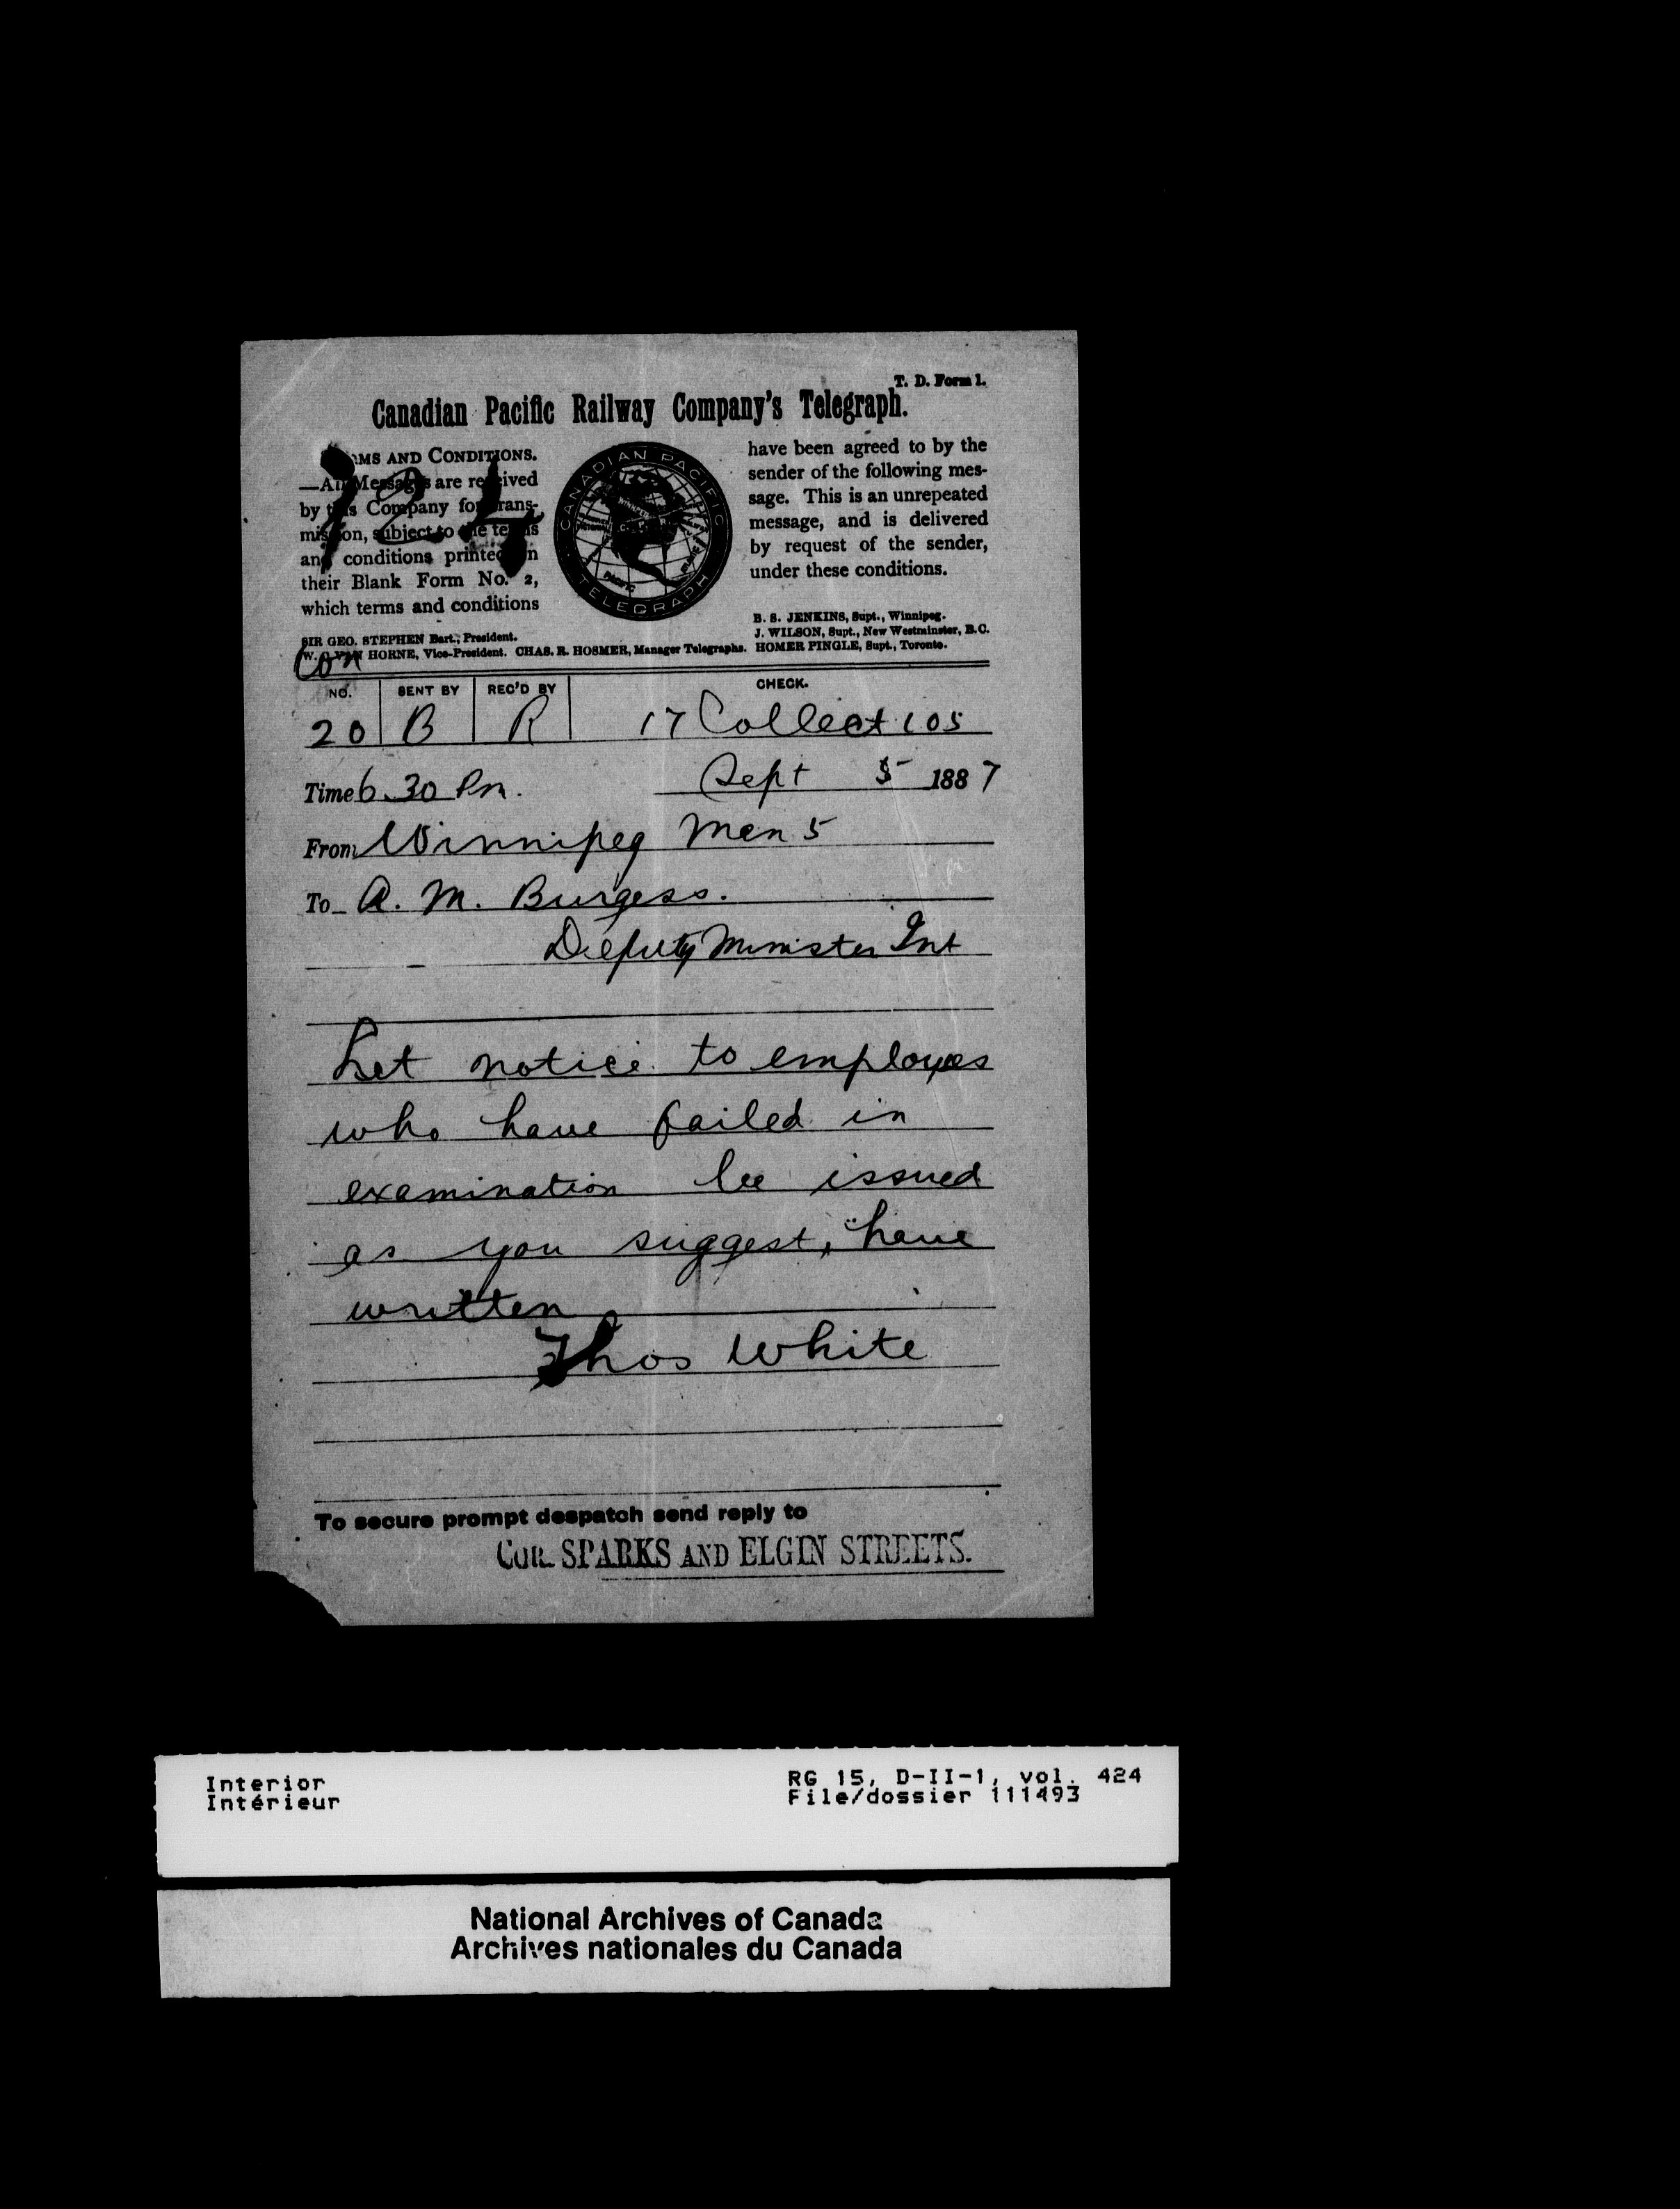 T. D. Form 1.
Canadian Pacific Railway Company's Telegraph.
TERMS AND CONDITIONS.
—All Messages are received
by this Company for trans-
mission, subject to the terms
and conditions printed on
their Blank Form No. 2,
which terms and conditions
CANADIAN PACIFIC
TELEGRAPH
have been agreed to by the
sender of the following mes-
sage. This is an unrepeated
message, and is delivered
by request of the sender,
under these conditions.
SIR GEO. STEPHEN Bart., President.
W. C. VAN HORNE, Vice-President. CHAS. R. HOSMER, Manager Telegraphs.
B. S. JENKINS, Supt., Winnipeg.
J. WILSON, Supt., New Westminster, B.C.
HOMER PINGLE, Supt., Toronto.
Con
NO. SENT BY REC'D BY CHECK.
20 B R 17 Collect 105
Time 6.30 Pm. Sept 5 1887
From Winnipeg Man 5
To A. M. Burgess.
Deputy Minister Int
Let notice to employes
who have failed in
examination be issued
as you suggest, have
written
Thos White
To secure prompt despatch send reply to
COR. SPARKS AND ELGIN STREETS.
Interior
Intérieur
RG 15, D-II-1, vol. 424
File/dossier 111493
National Archives of Canada
Archives nationales du Canada